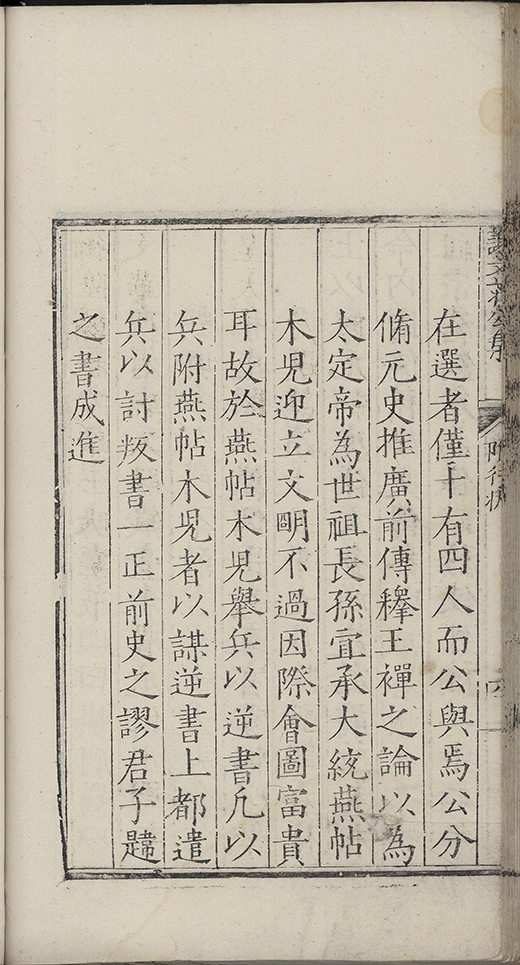 謝文莊公集 附行狀 四
在選者僅十有四人而公與焉公分
脩元史推廣前傳釋王禪之論以為
太定帝為世祖長孫宜承大統燕帖
木児迎立文朙不過因際會圖富貴
耳故於燕帖木児舉兵以逆書凢以
兵附燕帖木児者以謀逆書上都遣
兵以討叛書一正前史之謬君子韙
之書成進